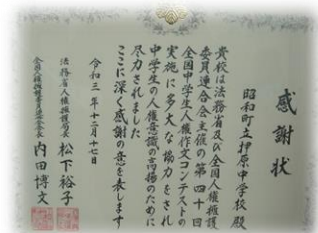 感謝状
昭和町立押原中学校 殿
貴校は法務省及び全国人権擁護
委員連合会主催の第四十回
全国中学生人権作文コンテストの
実施に多大な協力をされ
中学生の人権意識の高揚のために
尽力されました
ここに深く感謝の意を表します
令和三年十二月十七日
法務省人権擁護局長 松下裕子
全国人権擁護委員連合会会長 内田博文